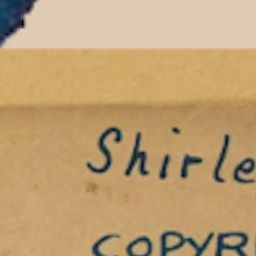 Shirle
COPYR